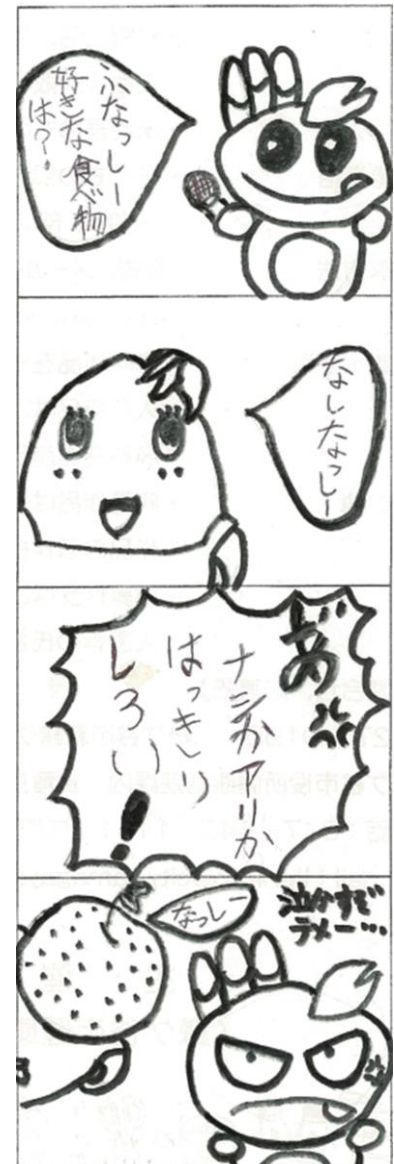 ふなっしー
好きな食べ物
は?
なしなっしー
あ゛
ナシかアリか
はっきり
しろい!
泣かすぞ
テメー…
なっしー